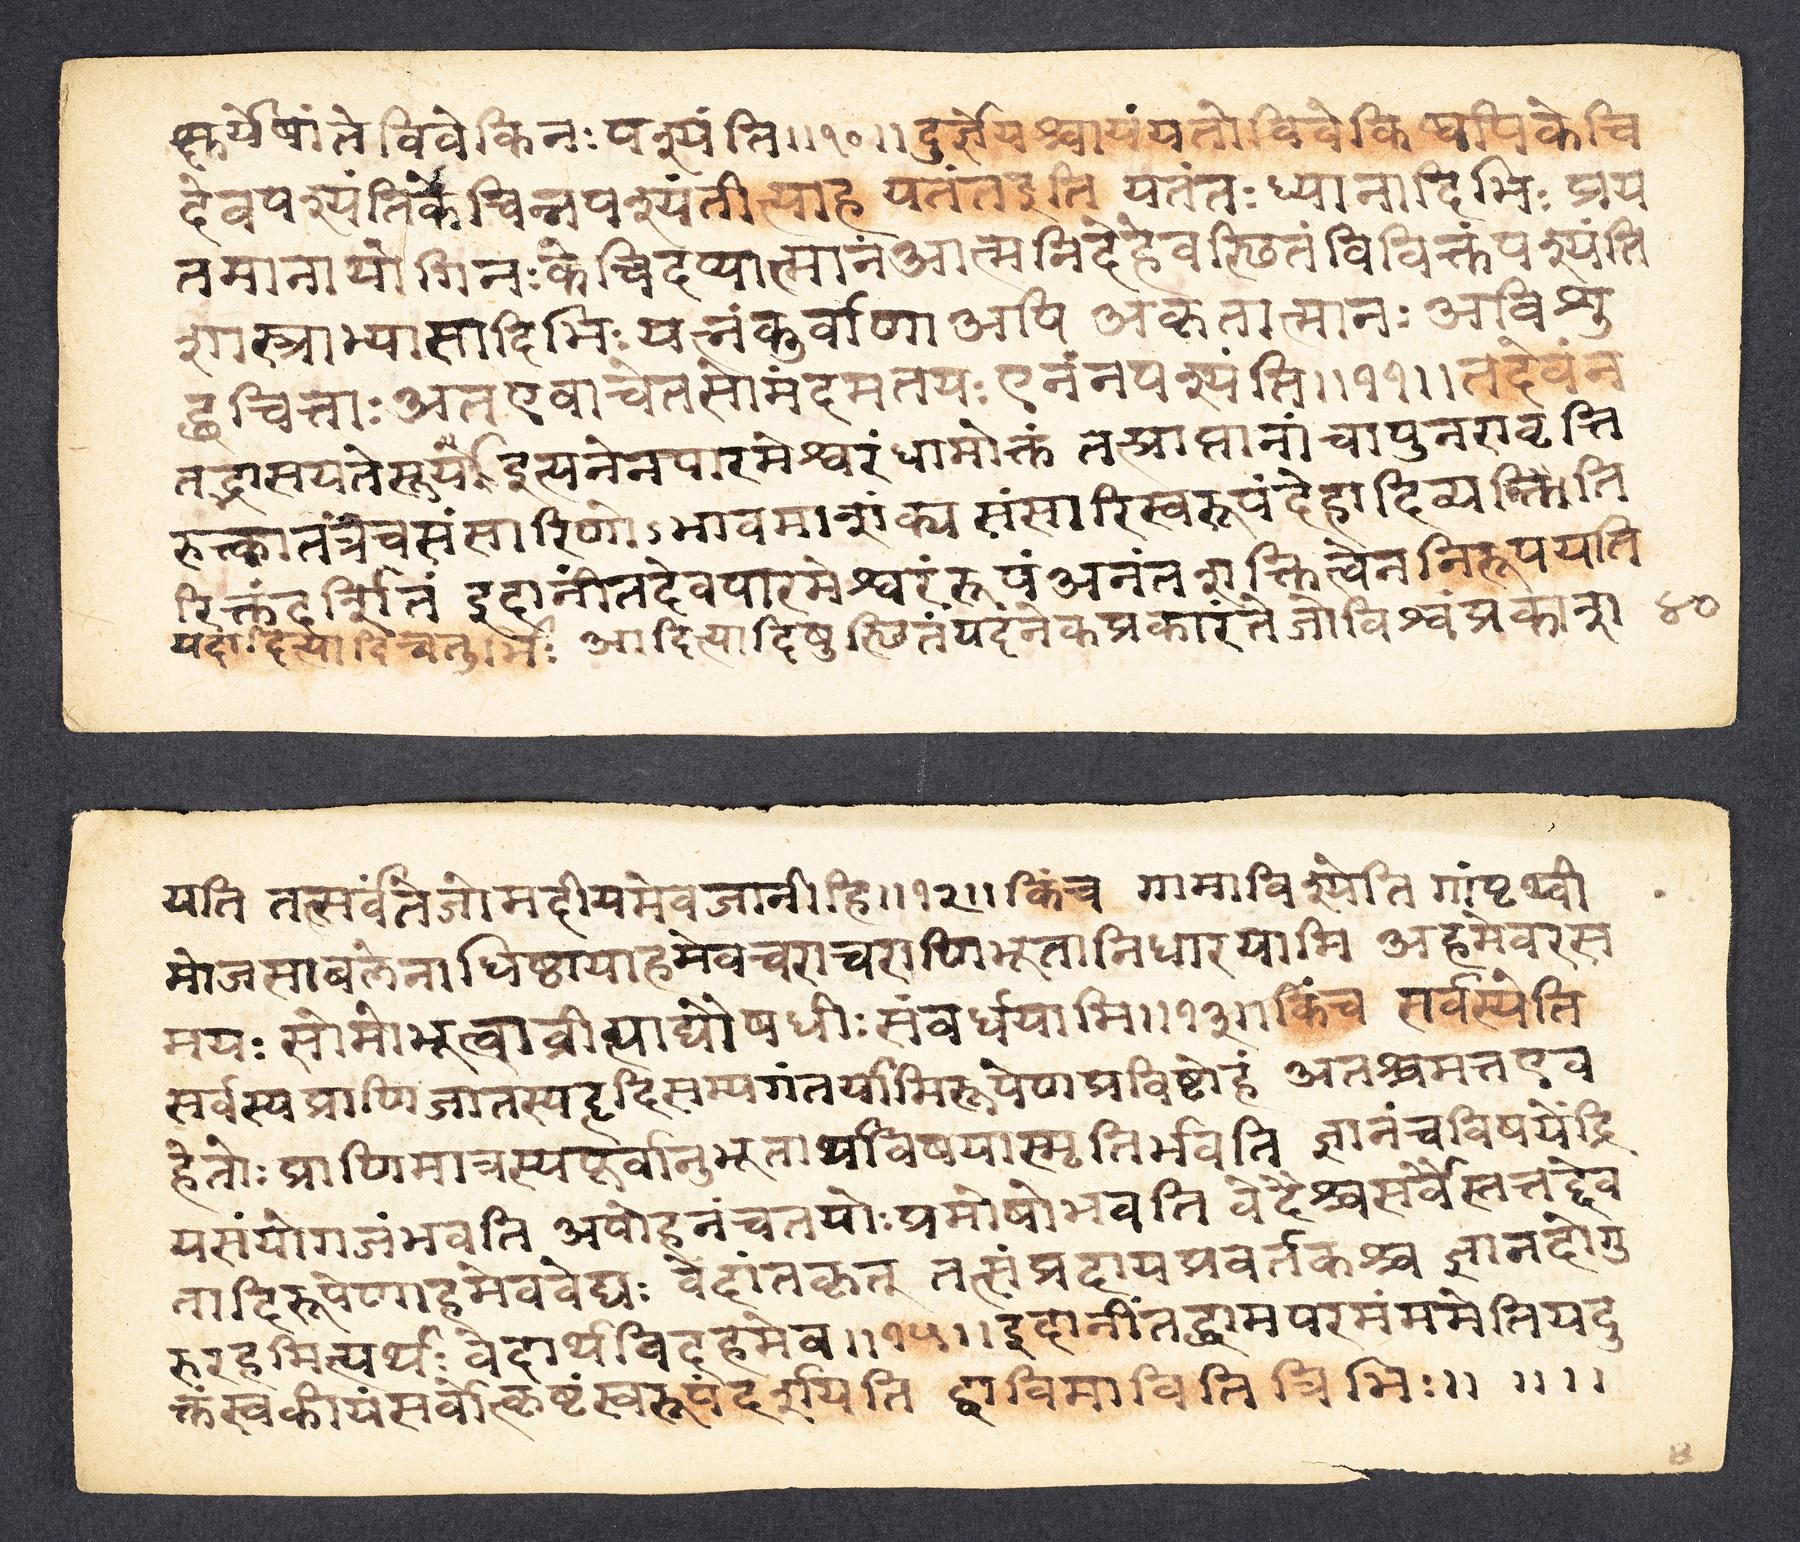 क्षुर्येषांते विवेकिनः पश्यंति॥१०॥दुर्ज्ञेयश्चायंयतोविवेकिष्वपिकेचि
देवपश्यंतिकेचिन्नपश्यंतीत्याह यतंतइति यतंतः ध्यानादिभिः प्रय
तमानायोगिनःकेचिदप्यात्मानंआत्मनिदेहेवस्थितंविविक्तंपश्यंति
शास्त्राभ्यासादिभिः यत्नंकुर्वाणाअपि अकृतात्मानः अविशु
द्धचित्ताः अतएवाचेतसोमंदमतयः एनंनपश्यंति॥११॥तदेवंन
तद्भासयतेसूर्य इत्यनेनपारमेश्वरंधामोक्तं तत्प्राप्तानांचापुनरावृत्ति
रुक्तातत्रचसंसारिणोऽभावमाशंक्य संसारिस्वरूपंदेहादिव्यति
रिक्तंदर्शितं इदानींतदेवपारमेश्वरंरूपंअनंतशक्तित्वेननिरूपयति
यदादित्यादिचतुर्भिः आदित्यादिषुस्थितंयदनेकप्रकारंतेजोविश्वंप्रकाश ४०
यति तत्सर्वंतेजोमदीयमेवजानीहि॥१२॥किंच गामाविश्येति गांपृथ्वी
मोजसाबलेनाधिष्ठायाहमेवचराचराणिभूतानिधारयामि अहमेवरस
मयः सोमोभूत्वाव्रीत्याद्यौषधीः संवर्धयामि॥१३॥किंच सर्वस्येति
सर्वस्यप्राणिजातस्यहृदिसम्यगंतर्यामिरूपेणप्रविष्टोहं अतश्चमत्तएव
हेतोः प्राणिमात्रस्यपूर्वानुभूतार्थविषयास्मृतिर्भवति ज्ञानंचविषयेंद्रि
यसंयोगजंभवति अपोहनंचतयोः प्रमोषोभवति वेदैश्चसर्वैस्तत्तद्देव
तादिरूपेणाहमेववेद्यः वेदांतकृत् तत्संप्रदायप्रवर्तकश्च ज्ञानदोगु
रुरहमित्यर्थः वेदार्थविदहमेव॥१५॥इदानींतद्धामपरमंममेतियदु
क्तंस्वकीयंसर्वोत्कृष्टंस्वरूपंदर्शयति द्वाविमावितित्रिभिः॥ ॥॥
४